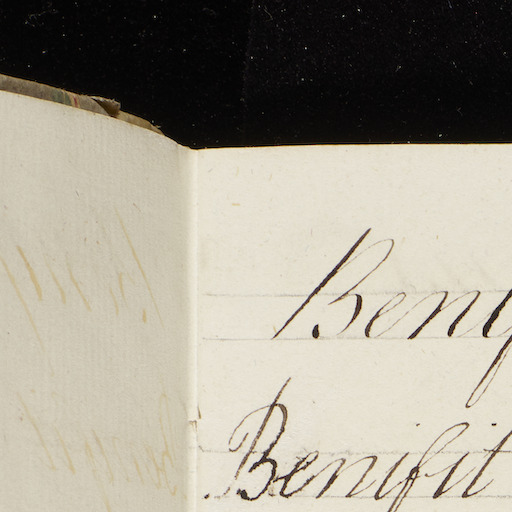 Benif
Benifit